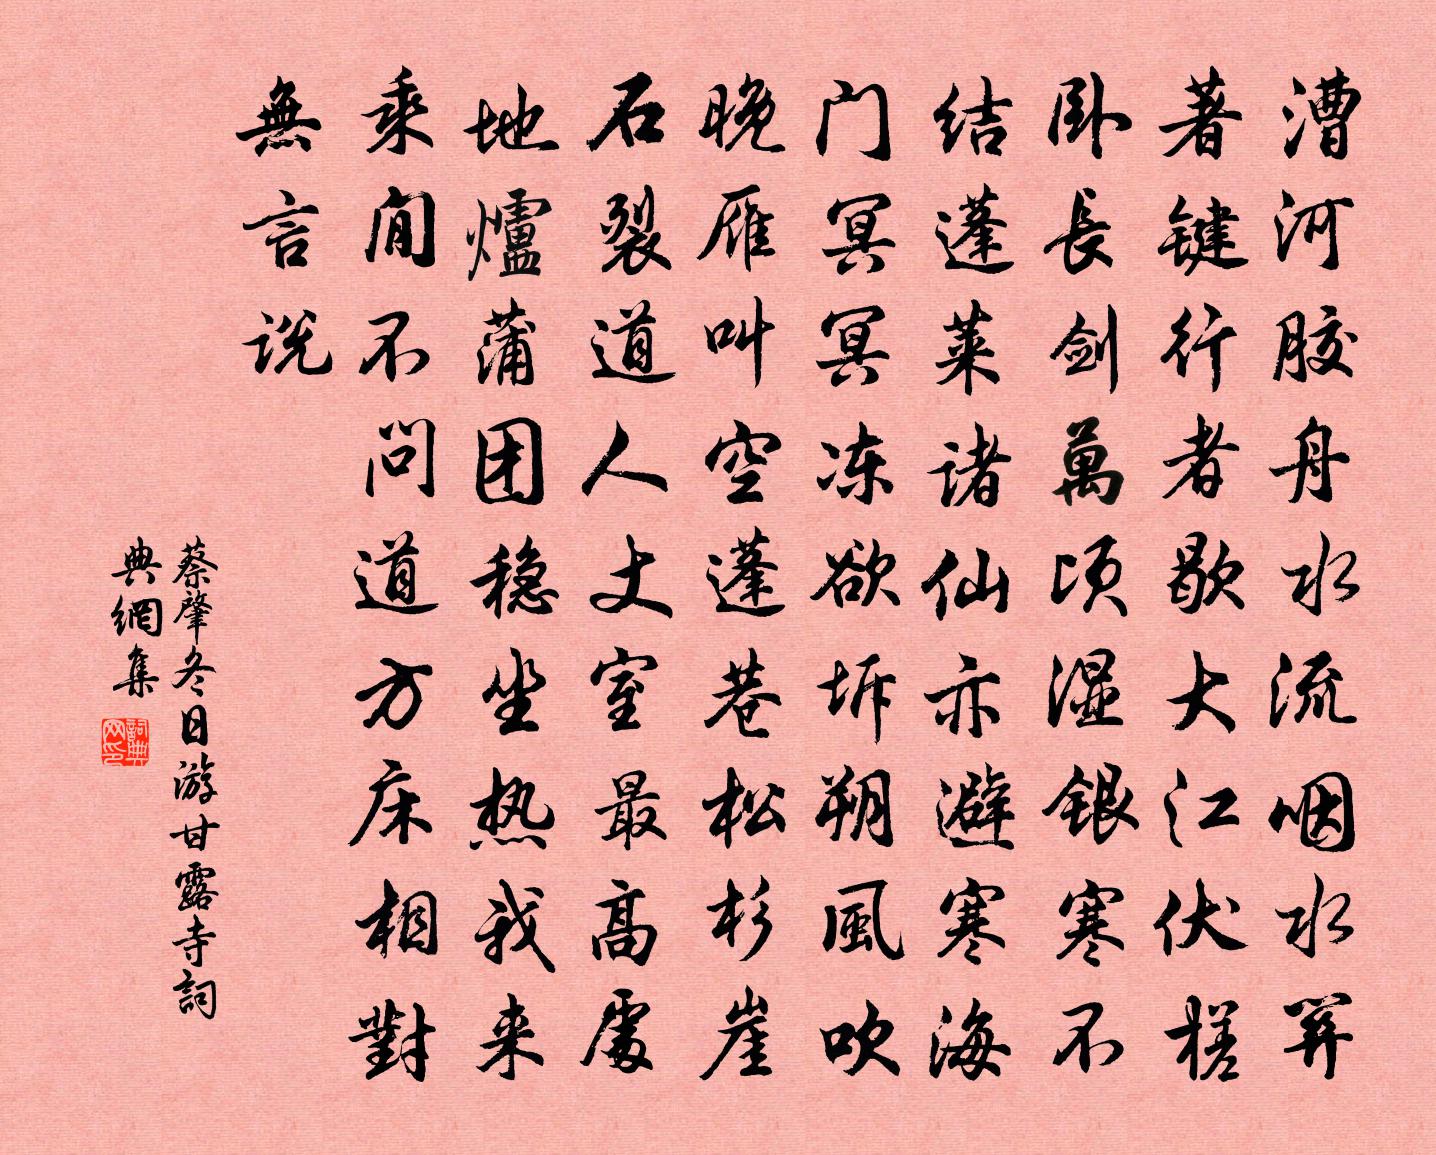 漕河胶舟水流咽水
著键行者歇大江伏槎
卧長剑萬顷湿银寒不
结蓬莱诸仙亦避寒海
门冥冥冻欲坼朔風吹
晚雁叫空蓬巷松杉崖
石裂道人丈室最高處
地爐蒲团稳坐热我来
乘閒不问道方床相對
無言说
蔡肇冬日游甘露寺詞
典網集
詞典
网印